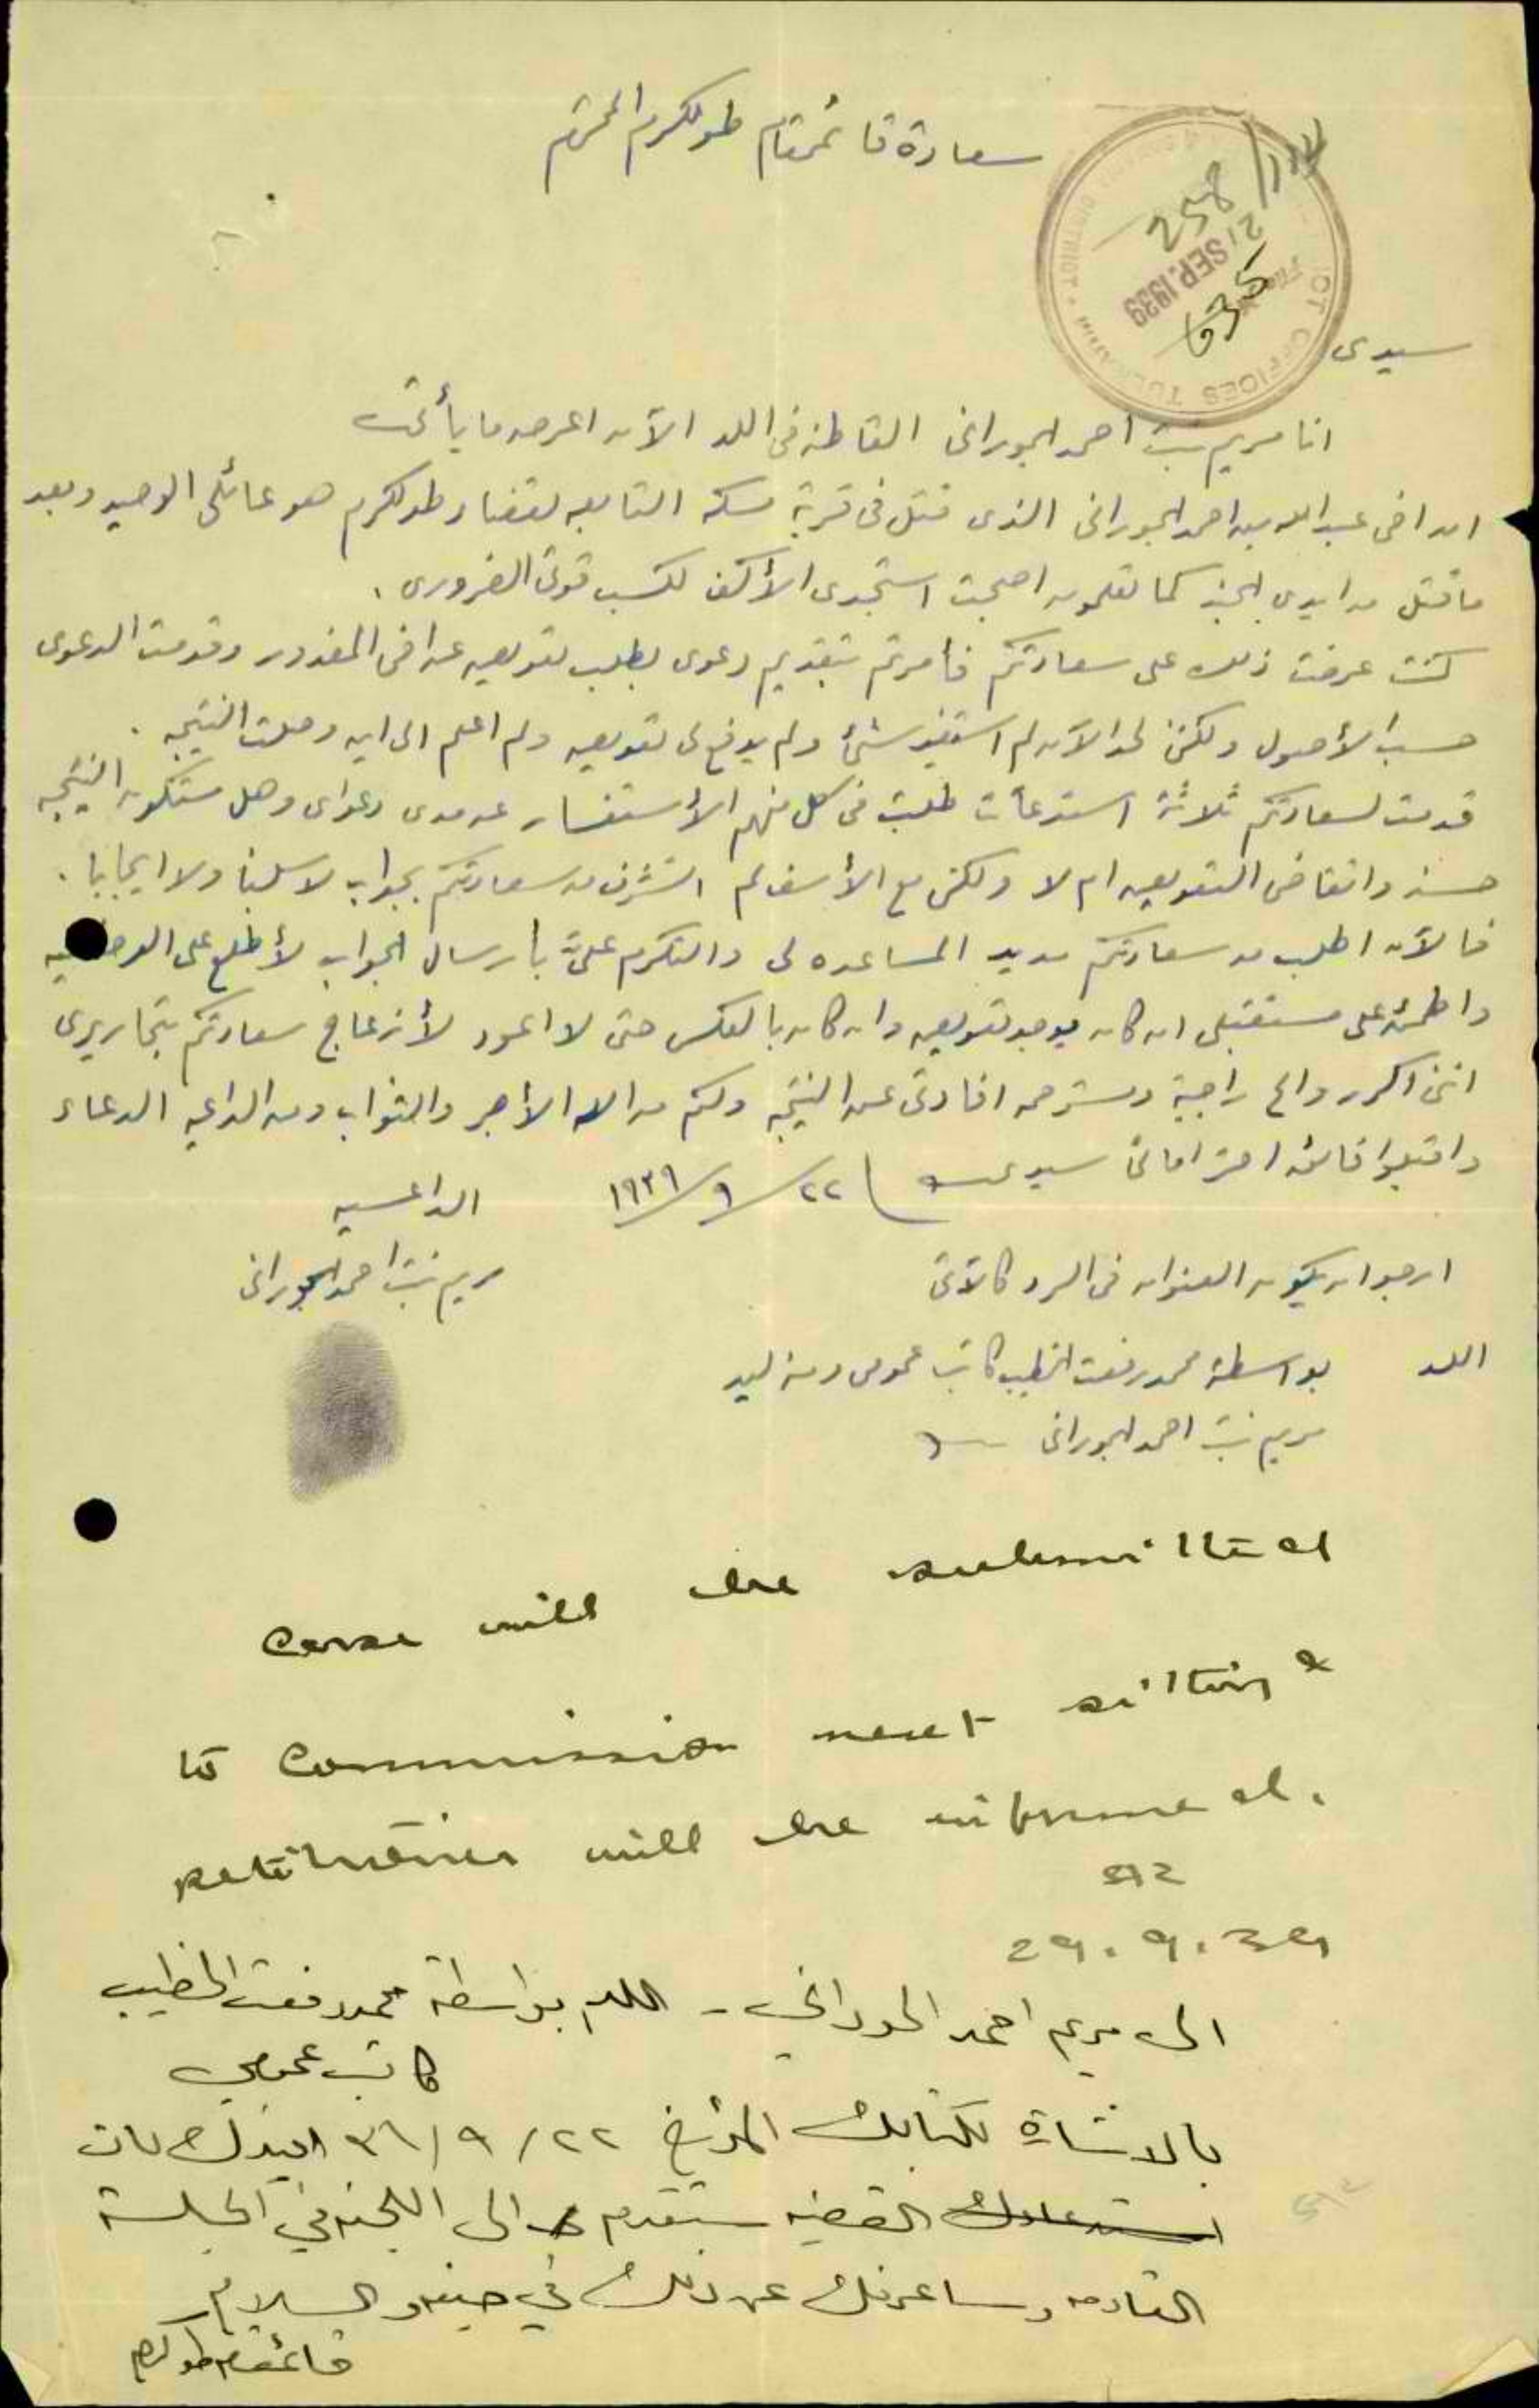 سعادة قائمقام طولكرم المحترم
258/
21 SEP. 1939
635
DISTRICT OFFICES TULKARM
سيدى
انا مريم بنت احمد الحورانى القاطنه فى اللد الآن اعرض ما يأتى
ان اخى عبد الله بن احمد الحورانى الذى قتل فى قرية مسكه التابعه لقضاء طولكرم هو عائلى الوحيد وبعد
ما قتل من ايدى الجند كما تعلمون اصبحت استجدى الأكف لكسب قوتى الضرورى .
كنت عرضت ذلك على سعادتكم فأمرتم بتقديم دعوى بطلب تعويض عن اخى المغدور وقدمت الدعوى
حسب الأصول ولكن لحد الآن لم استفيد شئ ولم يدفع لى تعويض ولم اعلم الى اين وصلت النتيجه .
قدمت لسعادتكم ثلاثة استدعآت طلبت فى كل منهم الأستفسار عن مدى دعواى وهل ستكون النتيجه
حسنه واتقاضى التعويض ام لا ولكن مع الأسف لم اتشرف من سعادتكم بجواب لا سلبا ولا ايجابا .
فالآن اطلب من سعادتكم مد يد المساعده لى والتكرم علىّ بأرسال الجواب لأطلع على
واطمئن على مستقبلى ان كان يوجد تعويض وان كان بالعكس حتى لا اعود لأزعاج سعادتكم بتحاريرى
اننى اكرر والح راجية ومسترحمه افادتى عن النتيجه ولكم من الله الأجر والثواب ومن الداعيه الدعاء
واقبلوا فائق احتراماتى سيدى ٢٢/٩/١٩٣٩
الداعيه
مريم بنت احمد الحورانى
ارجو ان يكون العنوان فى الرد كالآتى
اللد بواسطة محمد رفعت الخطيب كاتب عمومى ومنه ليد
مريم بنت احمد الحورانى
Case will be submitted
to Commission next sitting &
petitioner will be informed.
29.9.39
الى مريم احمد الحوراني - اللد بواسطة محمد رفعت الخطيب
كاتب عمومي
بالاشارة لكتابك المؤرخ ٢٢/٩/٣٩ افيدك بان
استدعاؤك القضيه ستقدم الى اللجنه في الجلسة
القادمه وساعرفك عن ذلك في حينه والسلام
قائمقام طولكرم